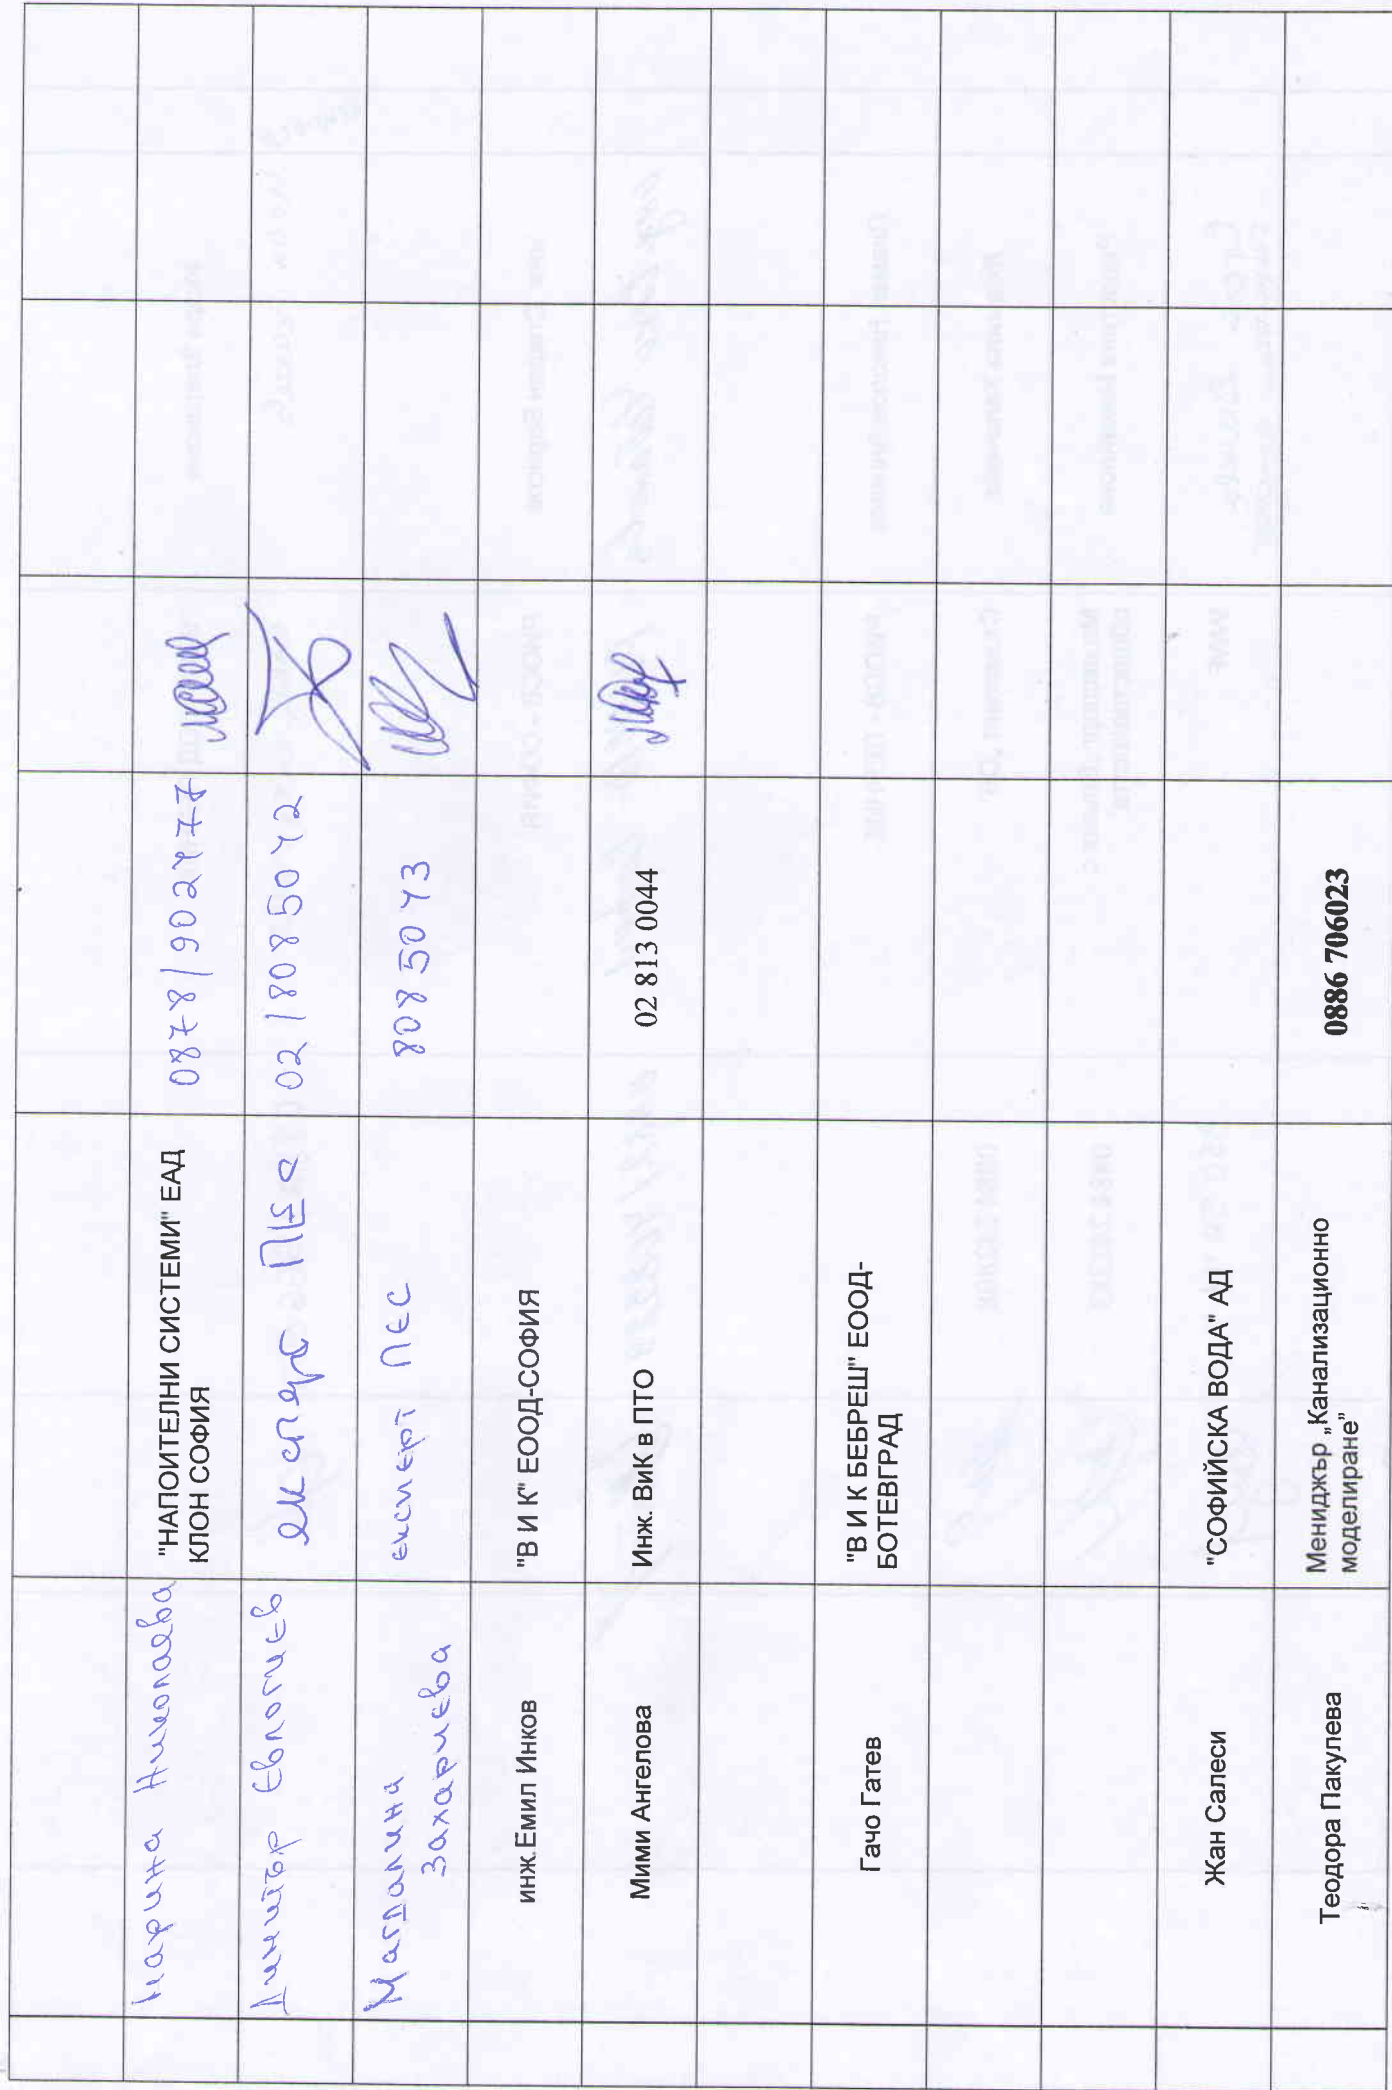 Марина Николаева
"НАПОИТЕЛНИ СИСТЕМИ" ЕАД
КЛОН СОФИЯ
0878/902477
Димитър Евлогиев
експерт ПЕС
02/8085042
Магдалина
Захариева
експерт ПЕС
8085043
инж.Емил Инков
"В И К" ЕООД-СОФИЯ
Мими Ангелова
Инж. ВиК в ПТО
02 813 0044
Гачо Гатев
"В И К БЕБРЕШ" ЕООД-
БОТЕВГРАД
Жан Салеси
"СОФИЙСКА ВОДА" АД
Теодора Пакулева
Мениджър „Канализационно
моделиране”
0886 706023